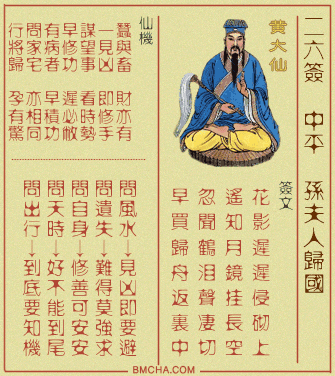 二六簽 中平 孫夫人歸國
黃大仙
簽文
花影遲遲侵砌上
遙知月鏡挂長空
忽聞鶴泪聲凄切
早買歸舟返裏中
仙機
蠶與畜 財亦有
一見凶 即修手
謀望事 看時勢
早修功 遲必敝
有病者 早積功
問家宅 亦相同
行將歸 孕有驚
問風水→見凶即要避
問遺失→難得莫強求
問自身→修善可安安
問天時→好不能到尾
問出行→到底要知機
BMCHA.COM